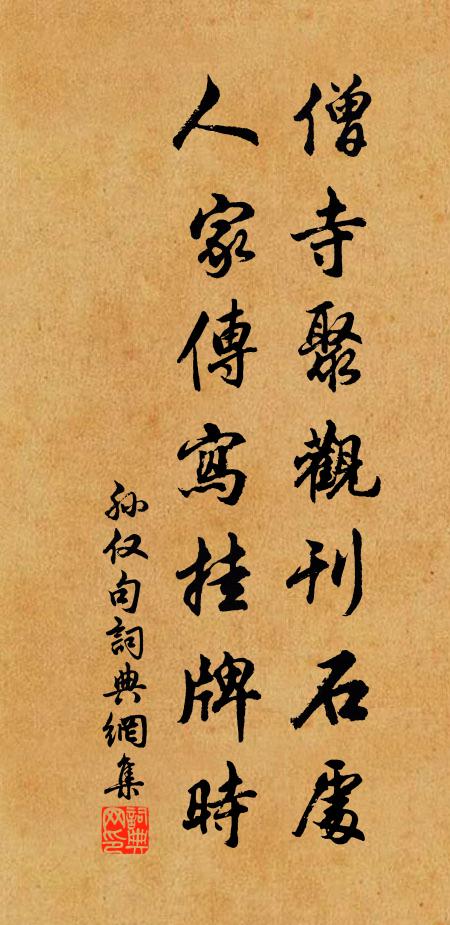 僧寺聚觀刊石處
人家傳寫挂牌時
孙仅句詞典網集
詞典网印